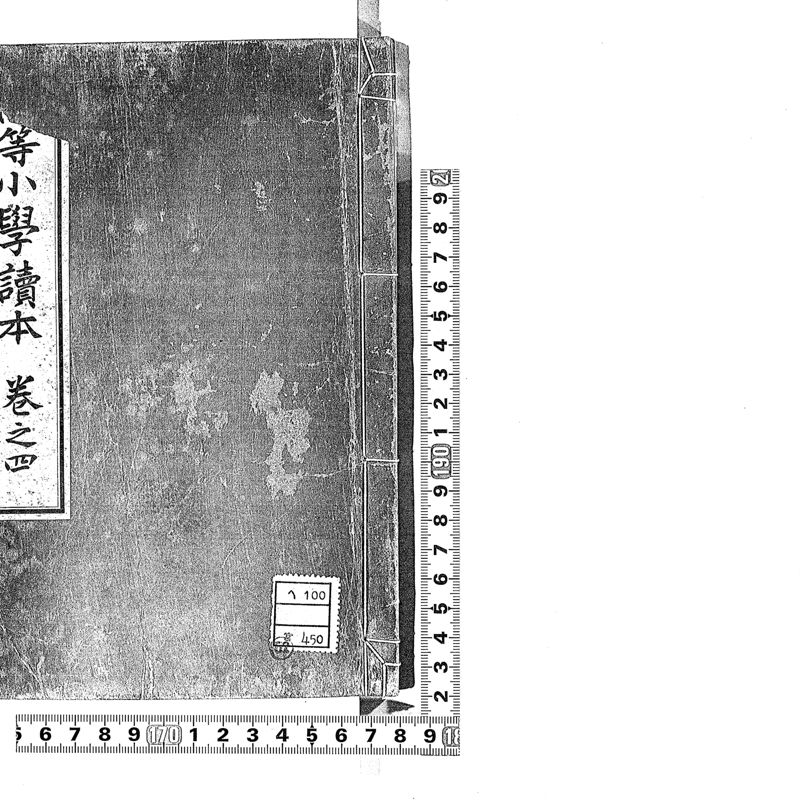 等小學讀本 卷之四
ヘ 100
450
2 9 8 7 6 5 4 3 2 1 190 9 8 7 6 5 4 3 2
5 6 7 8 9 170 1 2 3 4 5 6 7 8 9 18